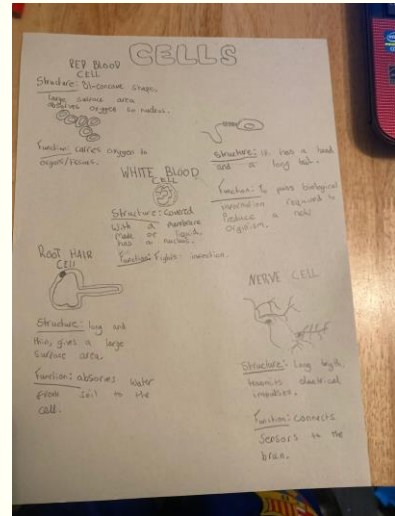 CELLS
RED BLOOD
CELL
Structure: Bi-concave shape,
large surface area
absorbs oxygen no nucleus.
Function: carries oxygen to
organs/tissues.
Structure: it has a head
and a long tail.
Function: To pass biological
information required to
Produce a new
organism.
WHITE BLOOD
CELL
Structure: Covered
With a membrane
made of liquid,
has a nucleus.
Function: Fights infection.
ROOT HAIR
CELL
Structure: long and
thin, gives a large
surface area.
Function: absorbs water
from soil to the
cell.
NERVE CELL
Structure: Long
electrical
impulses.
Function: Connects
Sensors to the
brain.